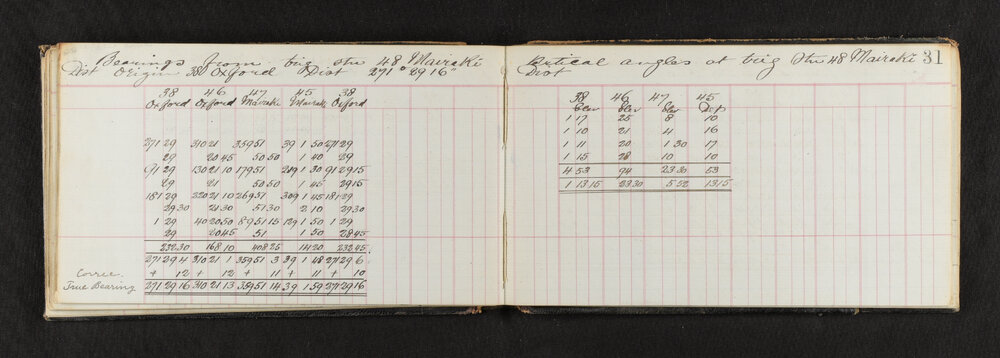 Bearings from trig stn 48 Mairaki
Dist Origin 38 Oxford Dist 271° 29' 16"
38 46 47 45 38
Oxford Oxford Mairaki Mairaki Oxford
271 29 310 21 359 51 39 1 50 271 29
29 20 45 50 50 1 40 29
91 29 130 21 10 179 51 219 1 30 91 29 15
29 21 50 50 1 45 29 15
181 29 220 21 10 269 51 309 1 45 181 29
29 30 21 30 51 30 2 10 29 30
1 29 40 20 50 89 51 15 129 1 50 1 29
29 20 45 51 1 50 28 45
232 30 168 10 408 25 14 20 232 45
271 29 4 310 21 1 359 51 3 39 1 48 271 29 6
Corrce. + 12 + 12 + 11 + 11 + 10
True Bearing 271 29 16 310 21 13 359 51 14 39 1 59 271 29 16
Vertical angles at trig Stn 48 Mairaki 31
Dist
38 46 47 45
Elev Elev Elev Dep
1 17 25 8 10
1 10 21 4 16
1 11 20 1 30 17
1 15 28 10 10
4 53 94 23 30 53
1 13 15 23 30 5 52 13 15